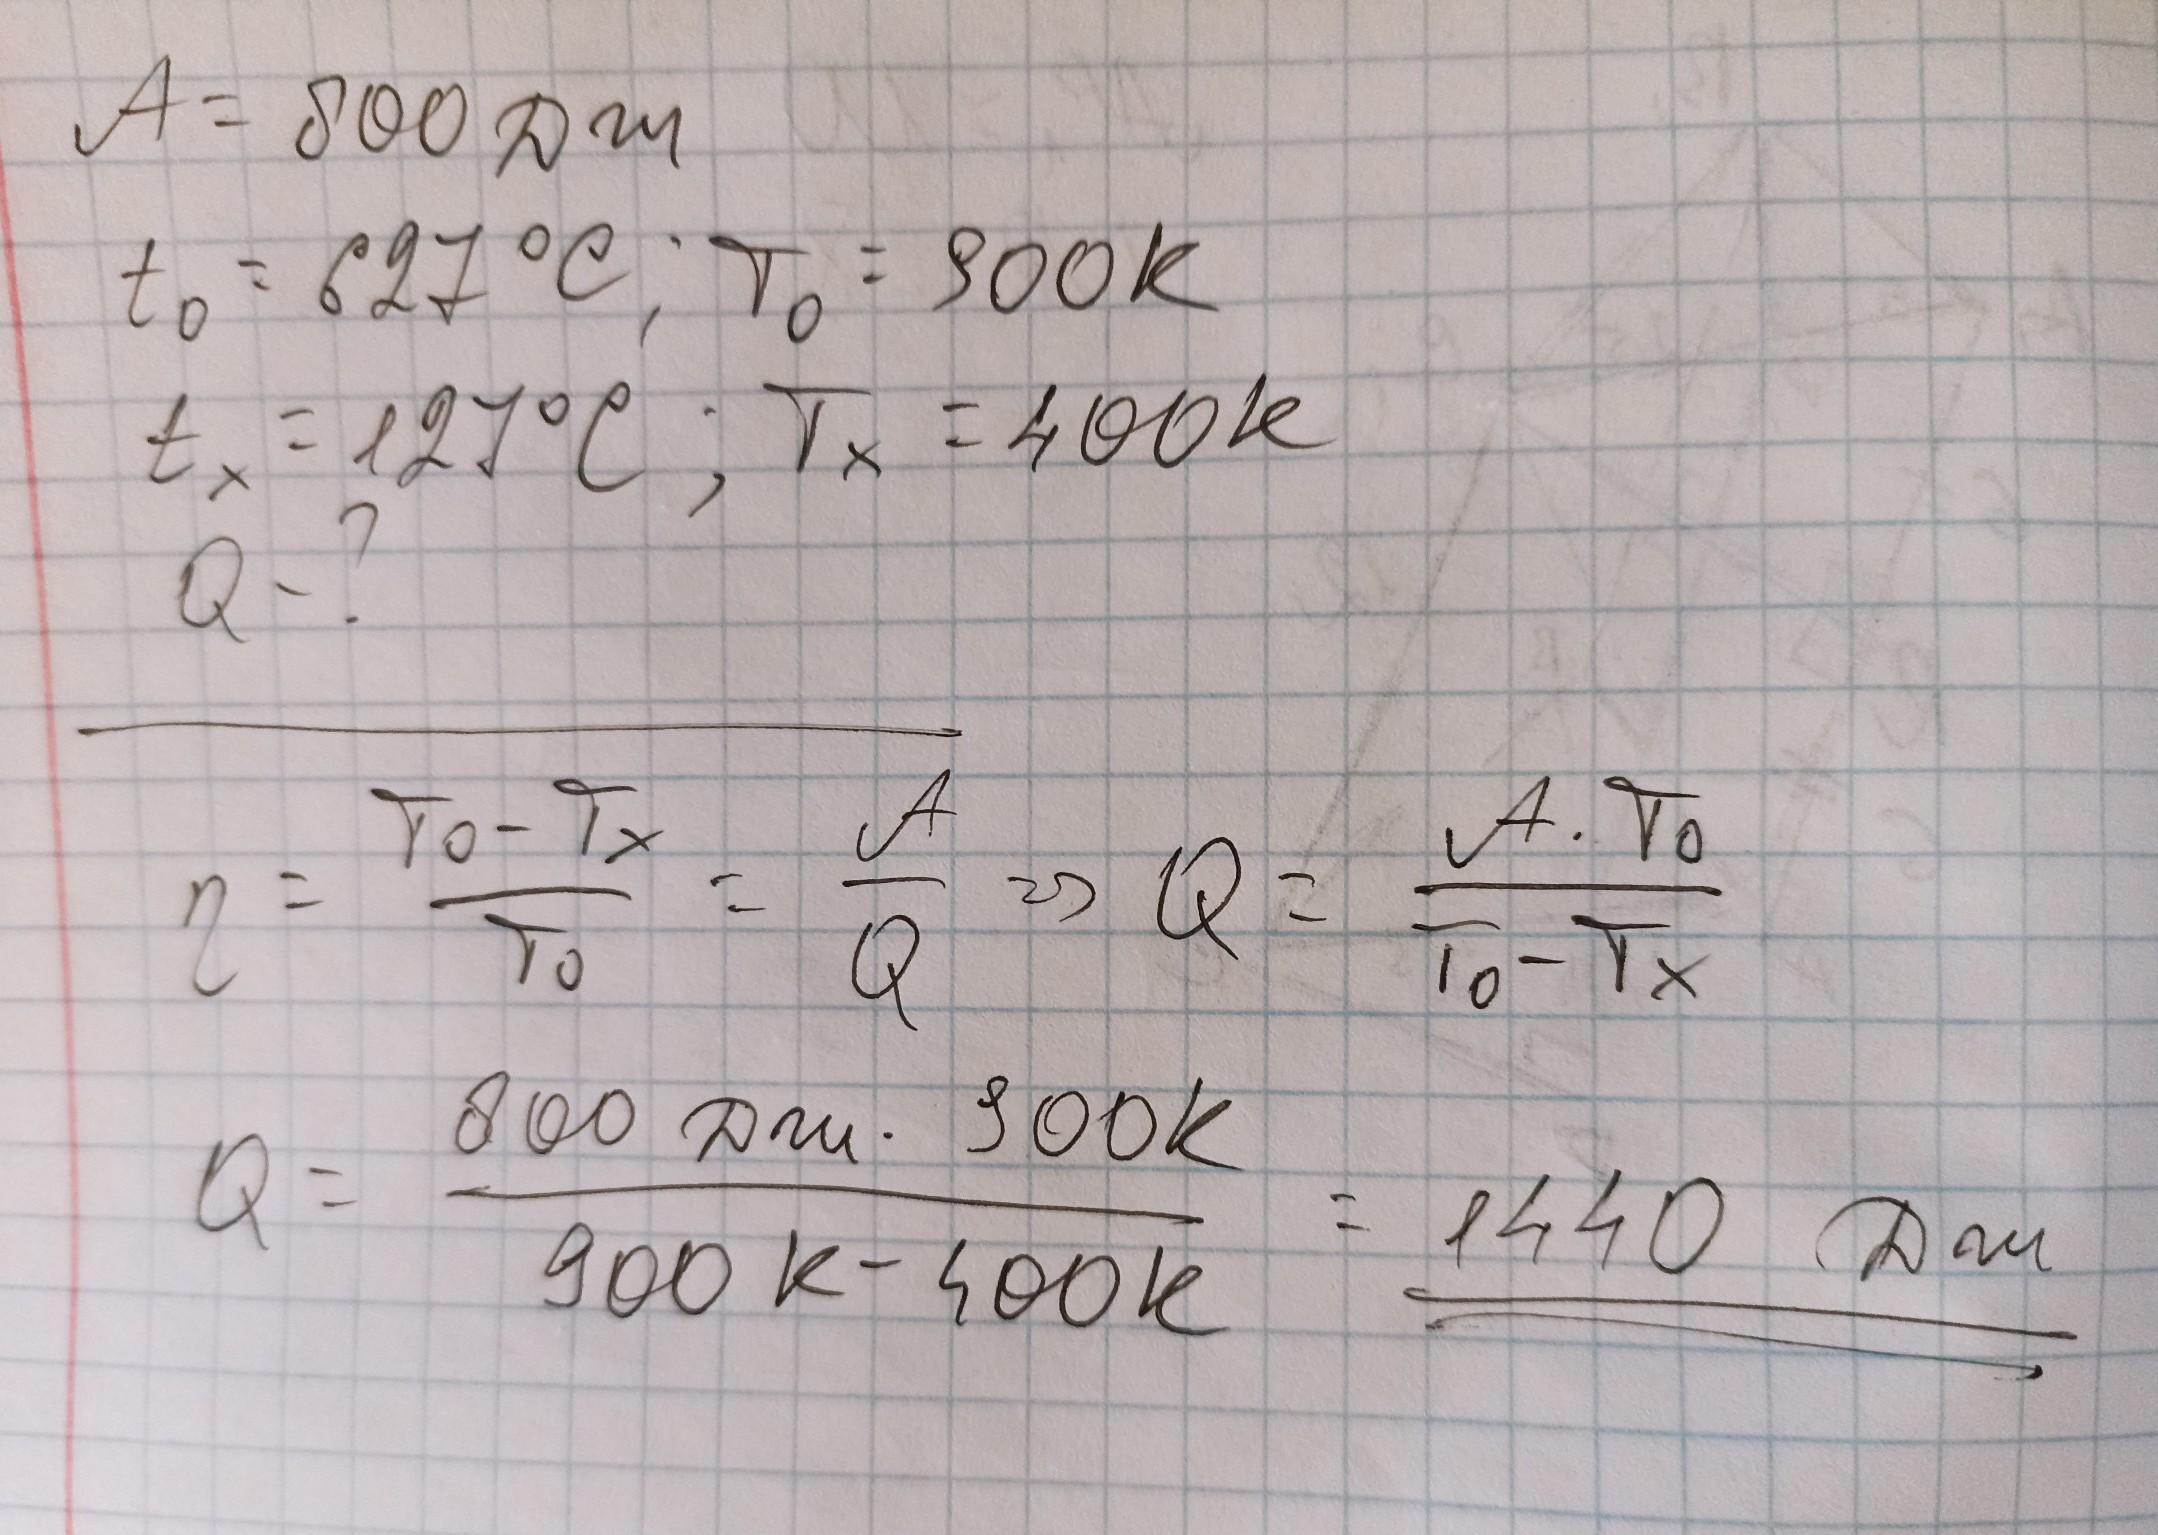 A = 800 Дж
t₀ = 627 °C; T₀ = 900 K
tₓ = 127 °C; Tₓ = 400 K
Q - ?
η = (T₀ - Tₓ) / T₀ = A / Q => Q = (A · T₀) / (T₀ - Tₓ)
Q = (800 Дж · 900 K) / (900 K - 400 K) = 1440 Дж